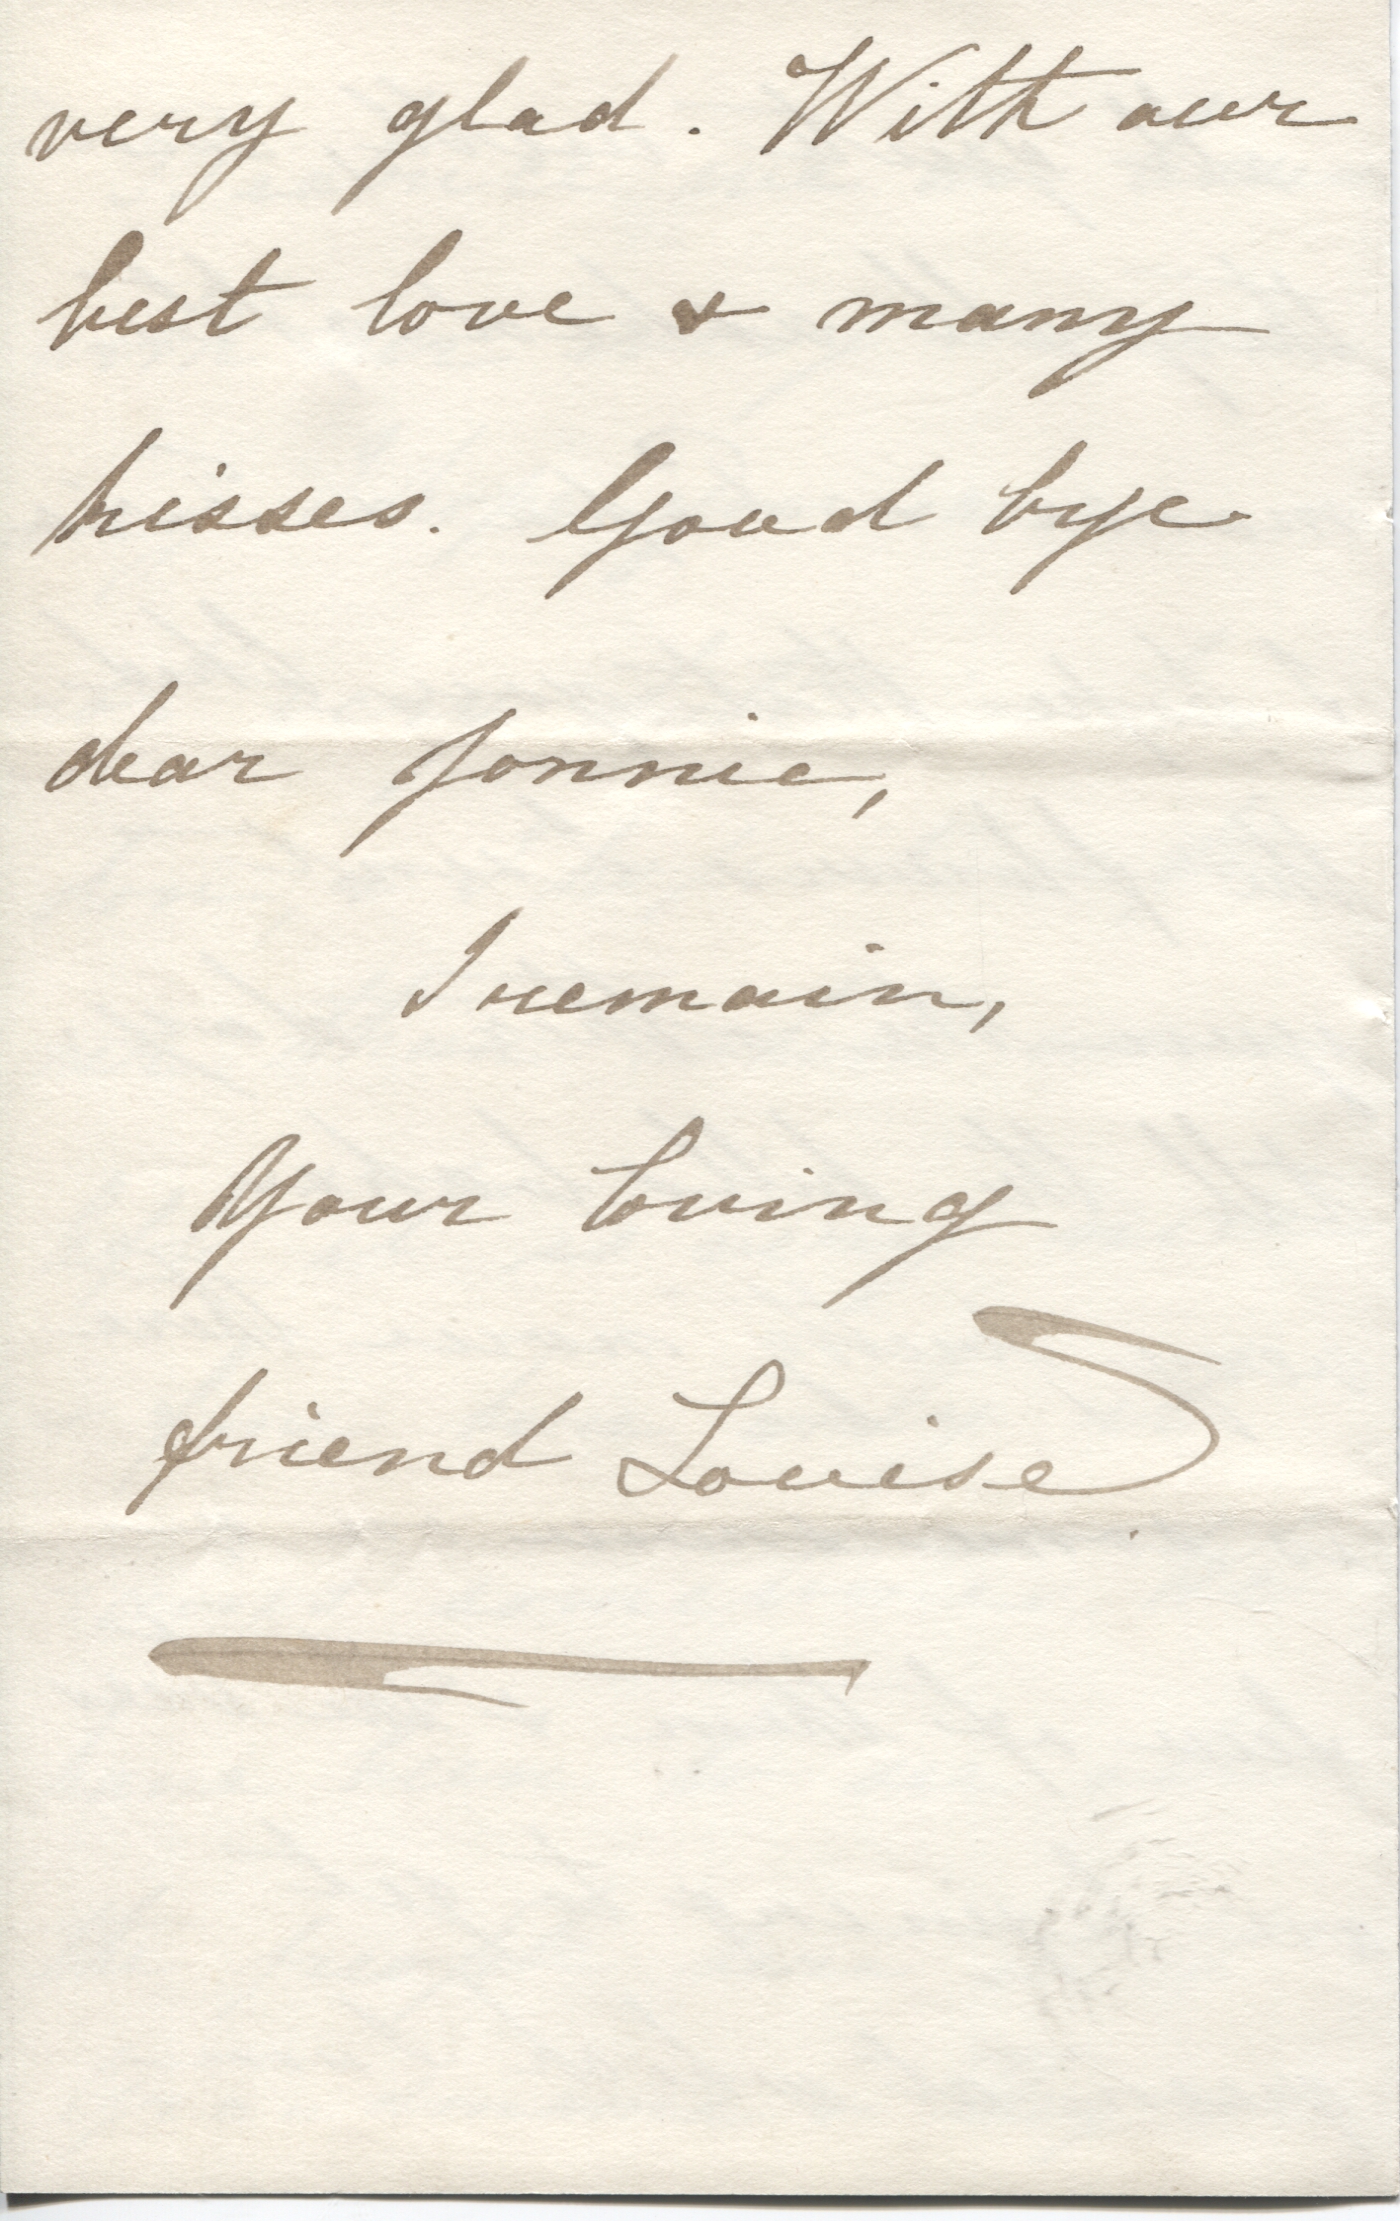 very glad. With our
best love & many
kisses. Good bye
dear Jonnie,
I remain,
Your loving
friend Louise